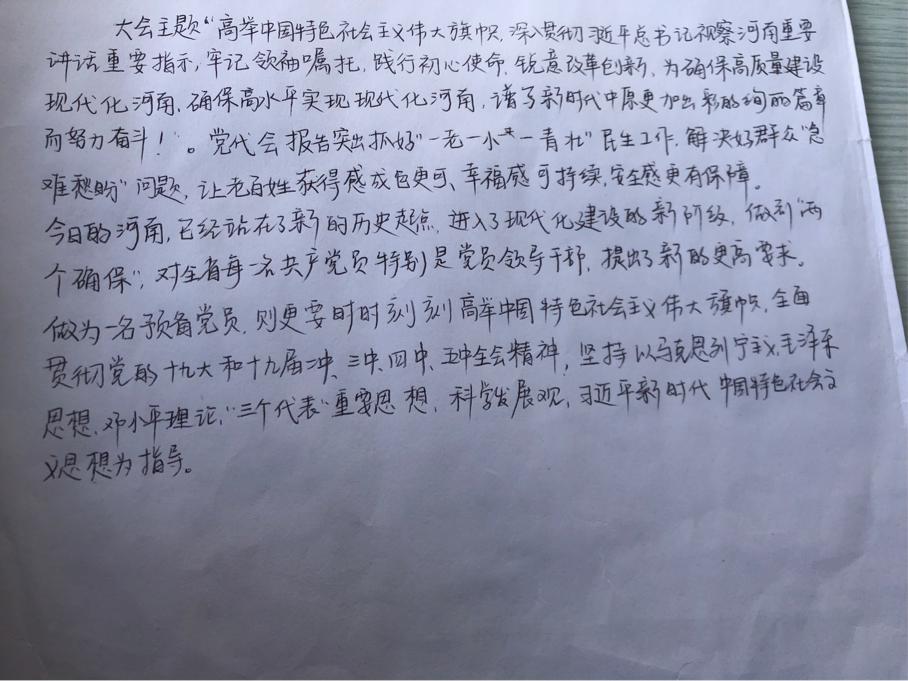 大会主题“高举中国特色社会主义伟大旗帜，深入贯彻习近平总书记视察河南重要
讲话重要指示，牢记领袖嘱托，践行初心使命，锐意改革创新，为确保高质量建设
现代化河南，确保高水平实现现代化河南，谱写新时代中原更加出彩的绚丽篇章
而努力奋斗！。党代会报告突出抓好“一老一小一青壮”民生工作，解决好群众“急
难愁盼”问题，让老百姓获得感成色更可、幸福感可持续，安全感更有保障。
今日的河南，已经站在了新的历史起点，进入了现代化建设的新阶级，做到“两
个确保”，对全省每一名共产党员特别是党员领导干部，提出了新的更高要求。
做为一名预备党员，则更要时时刻刻高举中国特色社会主义伟大旗帜，全面
贯彻党的十九大和十九届二中、三中、四中、五中全会精神，坚持以马克思列宁主义、毛泽东
思想、邓小平理论、“三个代表”重要思想，科学发展观，习近平新时代中国特色社会主
义思想为指导。